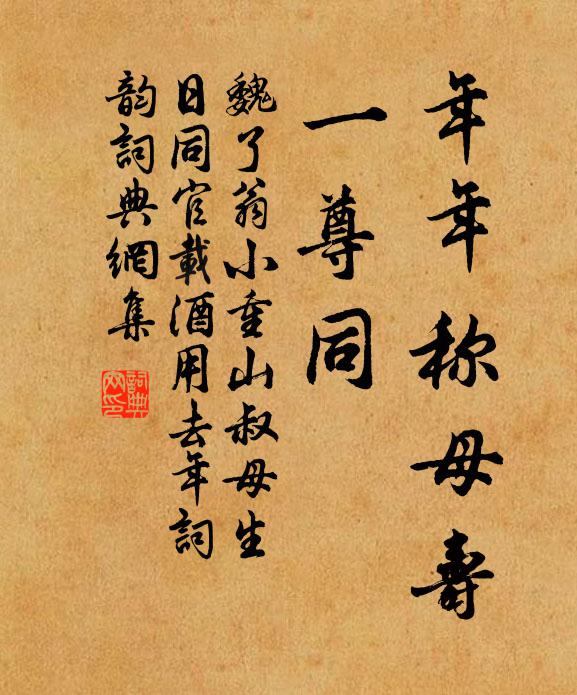 年年称母壽
一尊同
魏了翁小重山叔母生
日同官載酒用去年詞
韵詞典網集
詞典
网印